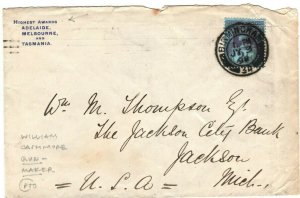 HIGHEST AWARDS
ADELAIDE,
MELBOURNE,
AND
TASMANIA.
Wm M. Thompson Esq.
The Jackson City Bank
Jackson
Mich.,
= U.S.A =
WILLIAM
CASHMORE
GUN-
MAKER
PTO